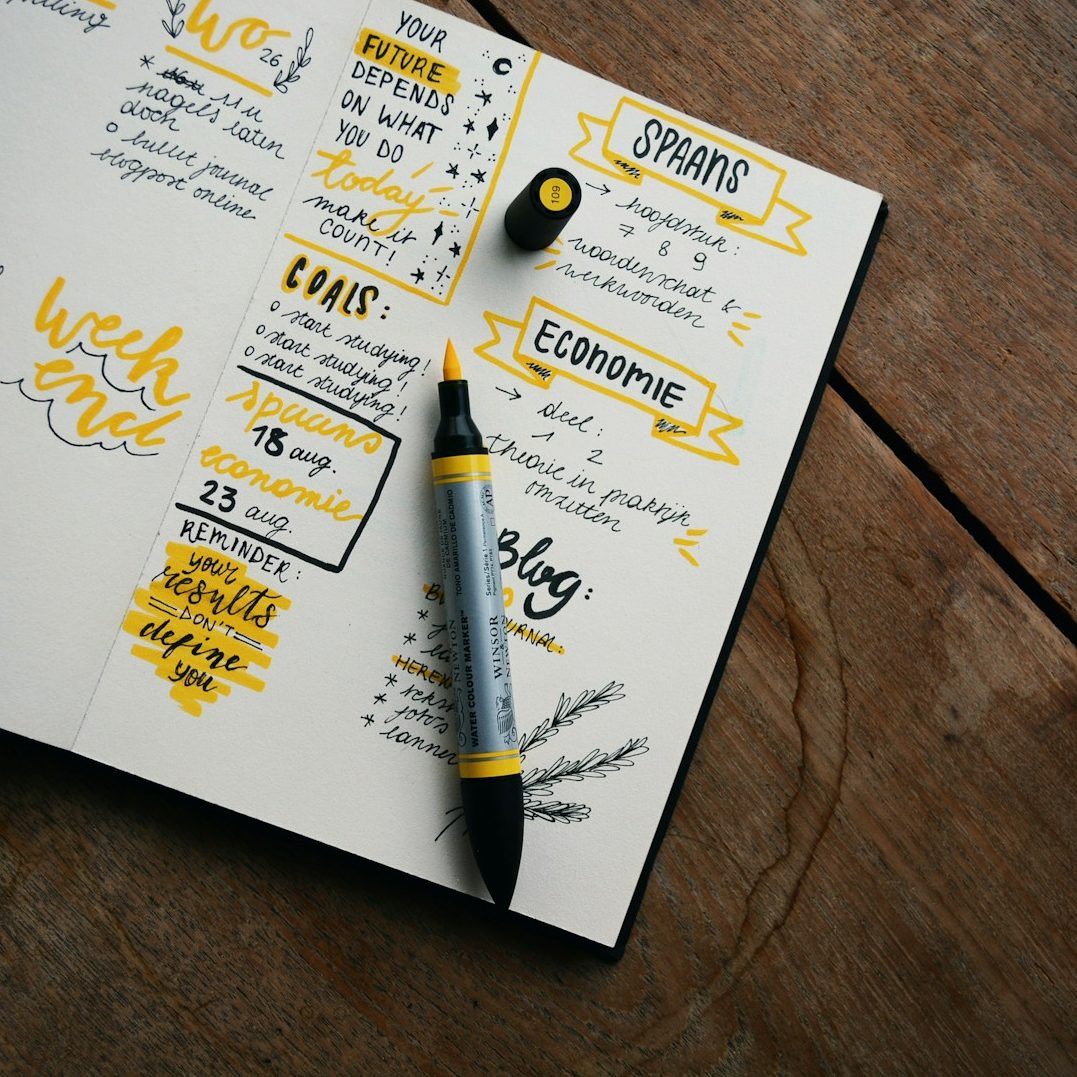 Wo
26
11 u
nagels laten
doen
o bullet journal
blogpost online
week
end
YOUR
FUTURE
DEPENDS
ON WHAT
YOU DO
today
make it
COUNT!
GOALS:
o start studying!
o start studying!
o start studying!
spaans
18 aug.
economie
23 aug.
REMINDER:
your
results
DON'T
define
you
SPAANS
→ hoofdstuk:
7 8 9
woordenschat &
werkwoorden
ECONOMIE
→ deel:
1 2
theorie in praktijk
omzetten
Blog:
* foto's
109
WINSOR
& NEWTON
WATER COLOUR MARKER™
TONO AMARILLO DE CADMIO
Series/Série 1
AP